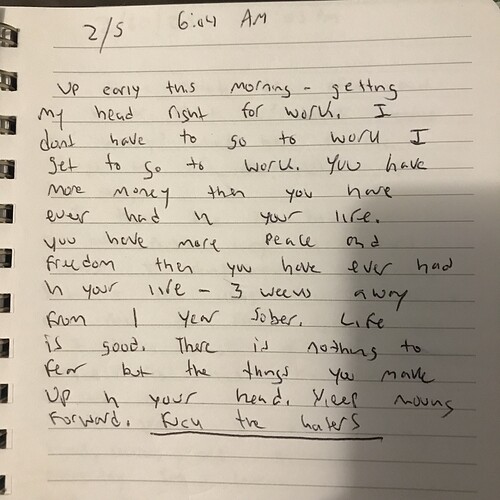 2/5 6:04 AM
Up early this morning - getting
my head right for work. I
dont have to go to work I
get to go to work. You have
more money then you have
ever had in your life.
you have more peace and
freedom then you have ever had
in your life - 3 weeks away
from 1 year sober. Life
is good. There is nothing to
fear but the things you make
up in your head. Keep moving
forward. Fuck the haters